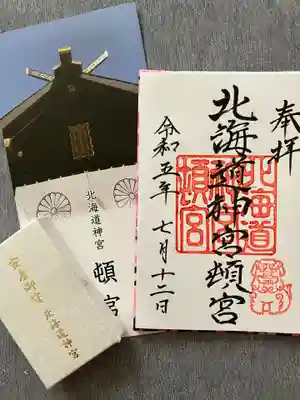 奉拝
北海道神宮頓宮
令和五年 七月十二日
北海道
頓宮
北海道神宮
頓宮
北海道神宮